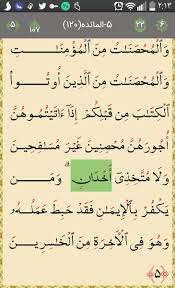 ۲:۱۳
۵-المائده(۱۲۰)
۱۰۷
وَٱلْمُحْصَنَـٰتُ مِنَ ٱلْمُؤْمِنَـٰتِ
وَٱلْمُحْصَنَـٰتُ مِنَ ٱلَّذِينَ أُوتُوا۟
ٱلْكِتَـٰبَ مِن قَبْلِكُمْ إِذَآ ءَاتَيْتُمُوهُنَّ
أُجُورَهُنَّ مُحْصِنِينَ غَيْرَ مُسَـٰفِحِينَ
وَلَا مُتَّخِذِىٓ أَخْدَانٍ ۗ وَمَن
يَكْفُرْ بِٱلْإِيمَـٰنِ فَقَدْ حَبِطَ عَمَلُهُۥ
وَهُوَ فِى ٱلْـَٔاخِرَةِ مِنَ ٱلْخَـٰسِرِينَ
۵